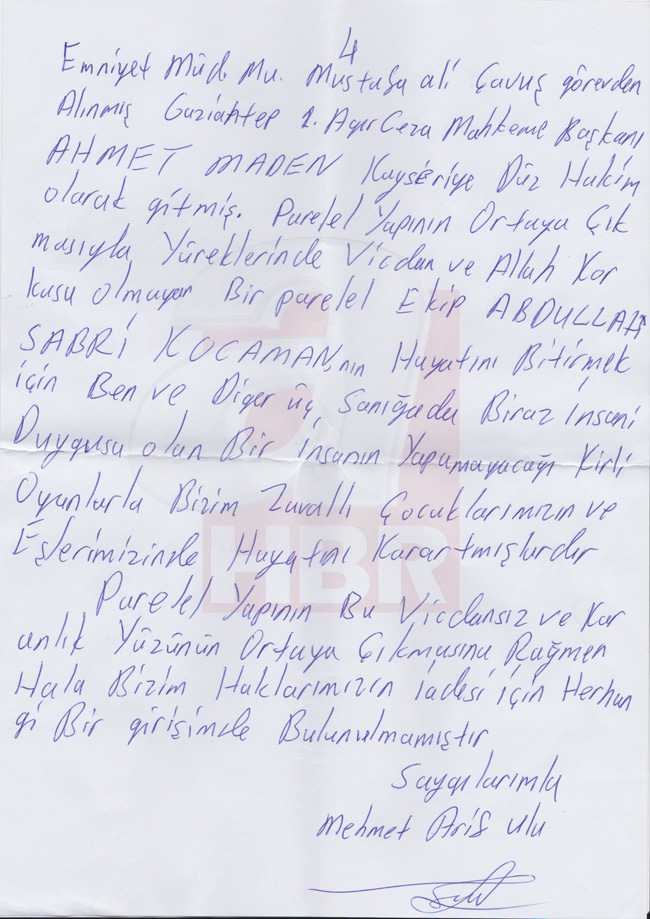 4
Emniyet Müd. Mu. Mustafa ali Çavuş görevden
Alınmış Gaziantep 2. Ağır Ceza Mahkeme Başkanı
AHMET MADEN Kayseriye Düz Hakim
olarak gitmiş. Parelel Yapının Ortaya Çık
masıyla Yüreklerinde Vicdan ve Allah Kor
kusu olmayan Bir parelel Ekip ABDULLAH
SABRİ KOCAMAN,nın Hayatını Bitirmek
için Ben ve Diger üç, Sanığada Biraz İnsani
Duygusu olan Bir İnsanın Yapamayacağı Kirli
Oyunlarla Bizim Zavallı Çocuklarımızın ve
Eşlerimizinde Hayatını Karartmışlardır
Parelel Yapının Bu Vicdansız ve Kar
anlık Yüzünün Ortaya Çıkmasına Rağmen
Hala Bizim Haklarımızın iadesi için Herhan
gi Bir girişimde Bulunulmamıştır
Saygılarımla
Mehmet Arif Ulu
al
HBR